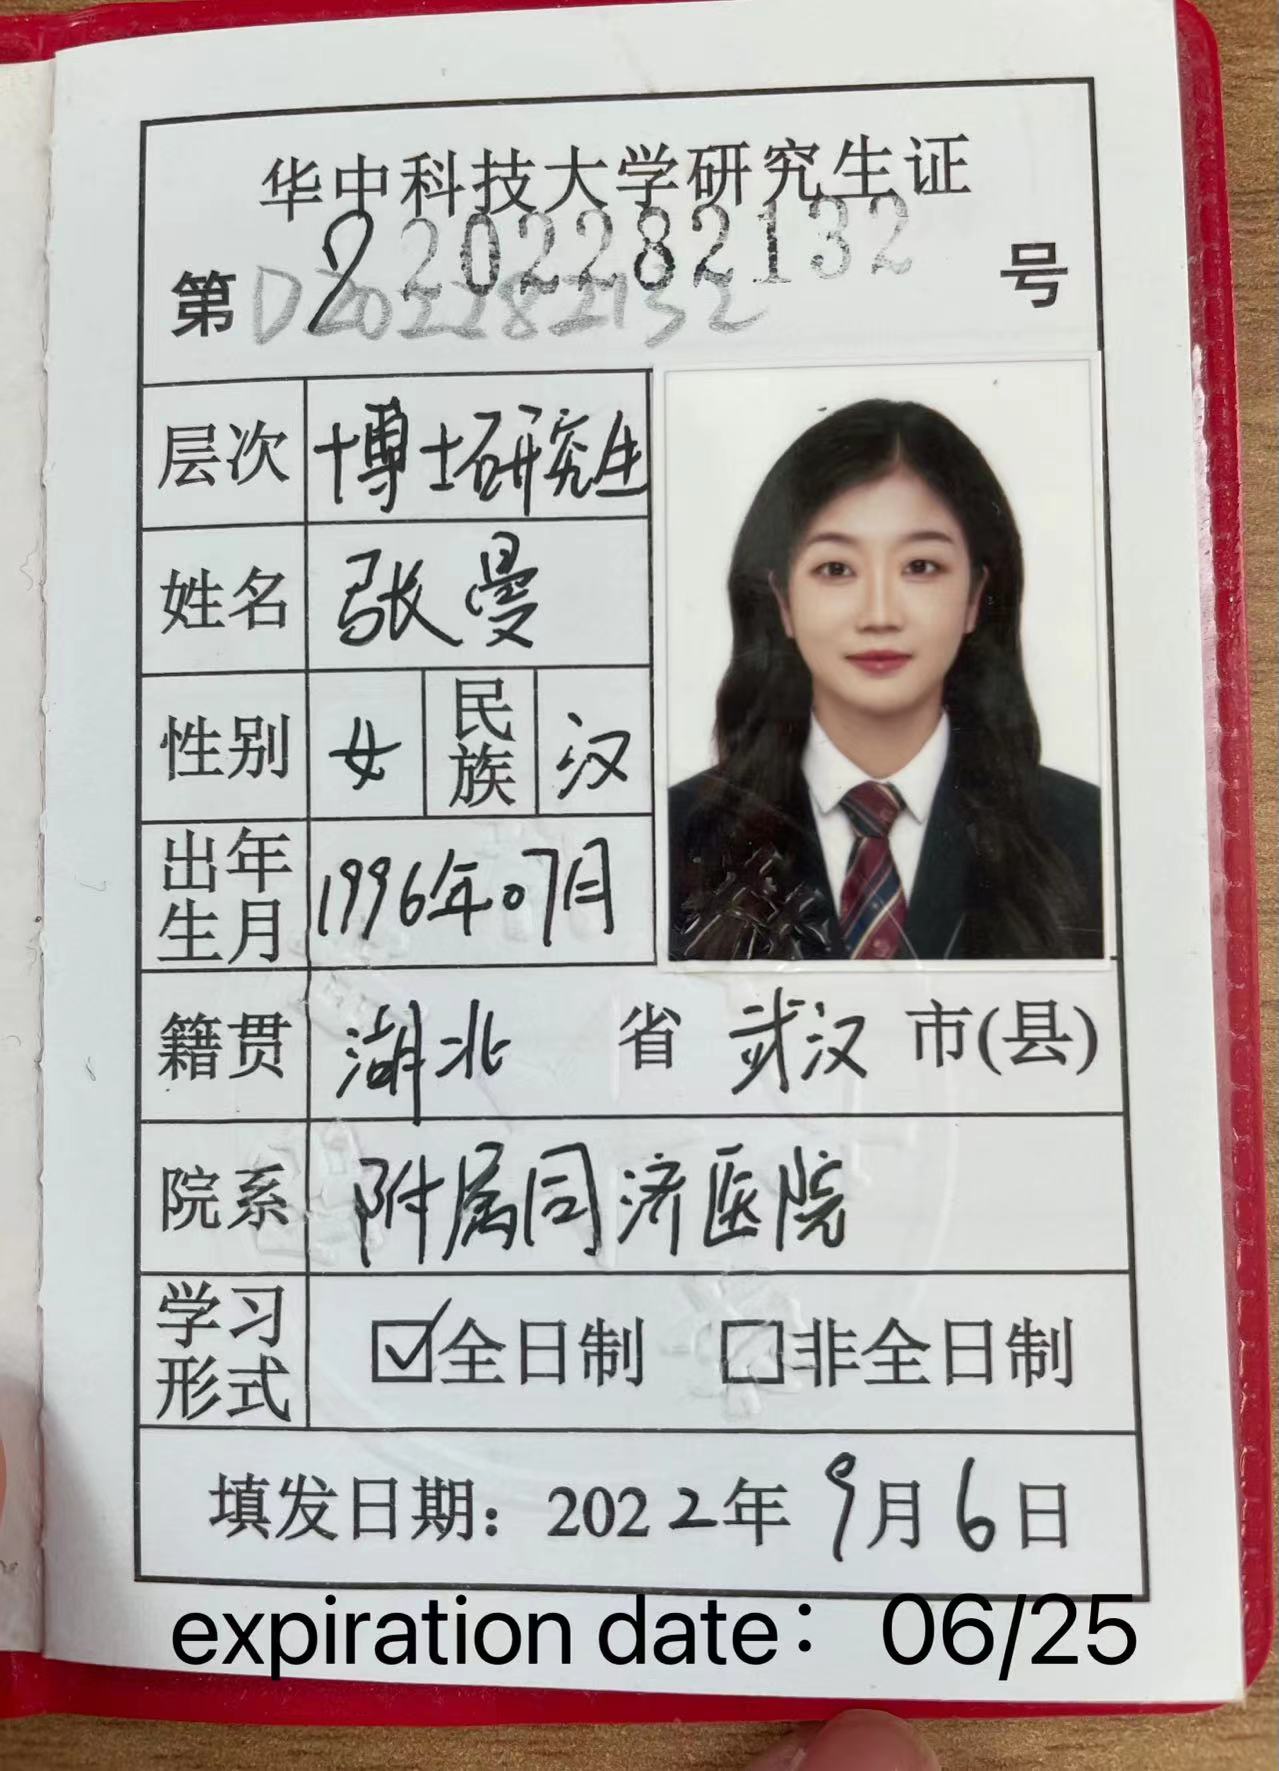 华中科技大学研究生证
第 D202282132 号
D202282132
层次 博士研究生
姓名 张曼
性别 女 民族 汉
出生年月 1996年07月
籍贯 湖北 省 武汉 市(县)
院系 附属同济医院
学习形式 ☑全日制 □非全日制
填发日期：2022年9月6日
expiration date：06/25